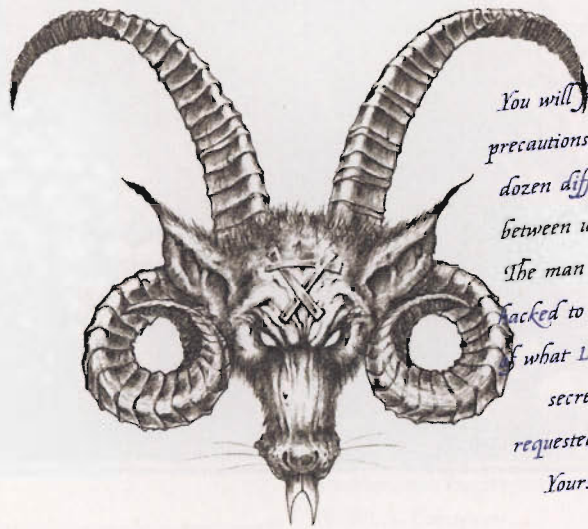 You will
precautions
dozen
between
The man
hacked to
of what
secre
requested
Yours